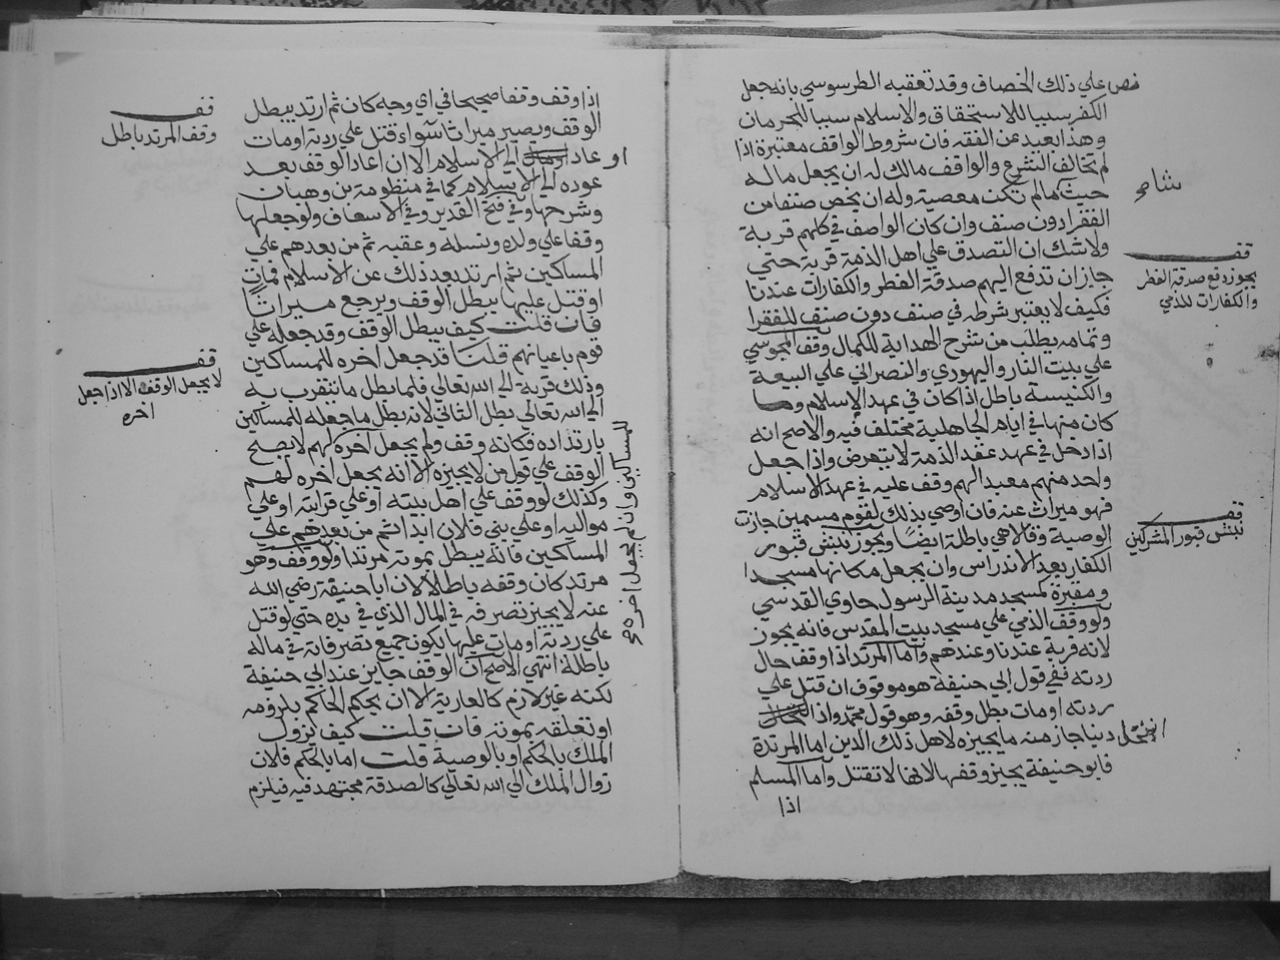 نص علي ذلك الخصاف وقد تعقبه الطرسوسي بانه جعل
الكفر سببا للاستحقاق والاسلام سببا للحرمان
وهذا بعيد عن الفقه فان شروط الواقف معتبرة اذا
لم تخالف الشرع والواقف مالك له ان يجعل ماله
حيث شا مالم تكن معصية وله ان يخص صنفا من
الفقرا دون صنف وان كان الواصف في كلهم قربة
ولا شك ان التصدق علي اهل الذمة قربة حتي
جاز ان تدفع اليهم صدقة الفطر والكفارات عندنا
فكيف لا يعتبر شرطه في صنف دون صنف للفقرا
وتمامه يطلب من شرح الهداية للكمال وقف المجوسي
علي بيت النار واليهودي والنصراني علي البيعة
والكنيسة باطل اذا كان في عهد الاسلام وما
كان منها في ايام الجاهلية مختلف فيه والاصح انه
اذا دخل في عهد عقد الذمة لا يتعرض واذا جعل
واحد منهم معبدا لهم وقف عليه في عهد الاسلام
فهو ميراث عنه فان اوصي بذلك لقوم مسمين جازت
الوصية وقالا هي باطلة ايضا ويجوز نبش قبور
الكفار بعد الاندراس وان يجعل مكانها مسجدا
ومقبرة كمسجد مدينة الرسول حاوي القدسي
ولو وقف الذمي علي مسجد بيت المقدس فانه يجوز
لانه قربة عندنا وعندهم واما المرتد اذا وقف حال
ردته ففي قول ابي حنيفة هو موقوف ان قتل علي
ردته او مات بطل وقفه وهو قول محمد واذا
انتحل دينا جاز منه ما يجيزه لاهل ذلك الدين اما المرتدة
فابو حنيفة يجيز وقفها لانها لا تقتل واما المسلم
اذا
قف
يجوز دفع صدقة الفطر
والكفارات للذمي
قف
نبش قبور المشركين
اذا وقف وقفا صحيحا في اي وجه كان ثم ارتد يبطل
الوقف ويصير ميراثا سواء قتل علي ردته او مات
او عاد الي الاسلام الا ان اعاد الوقف بعد
عوده الي الاسلام كما في منظومة بن وهبان
وشرحها وفي فتح القدير وفي الاسعاف ولو جعلها
وقفا علي ولده ونسله وعقبه ثم من بعدهم علي
المساكين ثم ارتد بعد ذلك عن الاسلام فمات
او قتل عليها يبطل الوقف ويرجع ميراثا
فان قلت كيف يبطل الوقف وقد جعله علي
قوم باعيانهم قلنا قد جعل اخره للمساكين
وذلك قربة الي الله تعالي فلما بطل ما تقرب به
الي الله تعالي بطل الثاني لانه بطل ما جعله للمساكين
بارتداده فكانه وقف ولم يجعل اخره لهم لا يصح
الوقف علي قول من لا يجيزه الا انه يجعل اخره لهم
وكذلك لو وقف علي اهل بيته او علي قرابته او علي
مواليه او علي بني فلان ابدا ثم من بعدهم علي
المساكين فانه يبطل بموته مرتدا ولو وقف وهو
مرتد كان وقفه باطلا لان ابا حنيفة رضي الله
عنه لا يجيز تصرفه في المال الذي في يده حتي لو قتل
علي ردته او مات عليها يكون جميع تصرفاته في ماله
باطلة انتهي الاصح ان الوقف جايز عند ابي حنيفة
لكنه غير لازم كالعارية الا ان يحكم الحاكم بلزومه
او تعلقه بموته فان قلت كيف يزول
الملك بالحكم او بالوصية قلت اما بالحكم فلان
زوال الملك الي الله تعالي كالصدقة مجتهد فيه فيلزم
للمساكين وان لم يجعل اخره
قف
وقف المرتد باطل
قف
لا يجعل الوقف الا اذا جعل
اخره